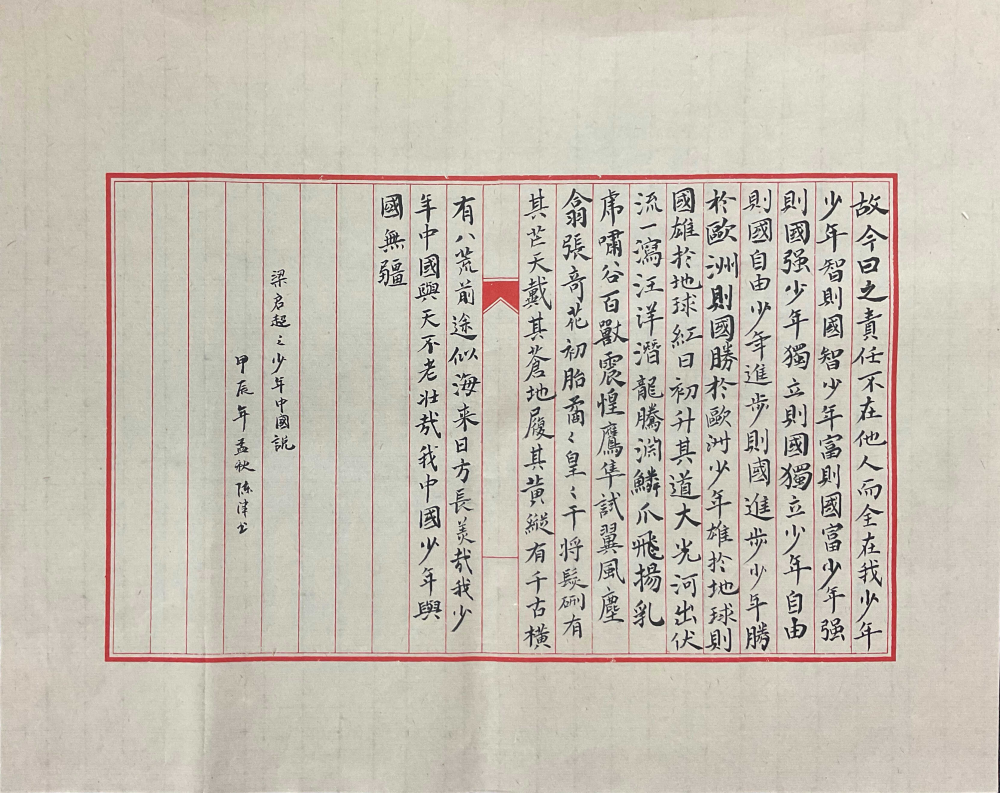 故今日之責任不在他人而全在我少年
少年智則國智少年富則國富少年强
則國强少年獨立則國獨立少年自由
則國自由少年進步則國進步少年勝
於歐洲則國勝於歐洲少年雄於地球則
國雄於地球紅日初升其道大光河出伏
流一瀉汪洋潛龍騰淵鱗爪飛揚乳
虎嘯谷百獸震惶鷹隼試翼風塵
翕張奇花初胎矞〻皇〻干將髮硎有
其芒天戴其蒼地履其黄縱有千古橫
有八荒前途似海来日方長美哉我少
年中國與天不老壯哉我中國少年與
國無疆
梁启超之少年中國説
甲辰年孟秋陈津书